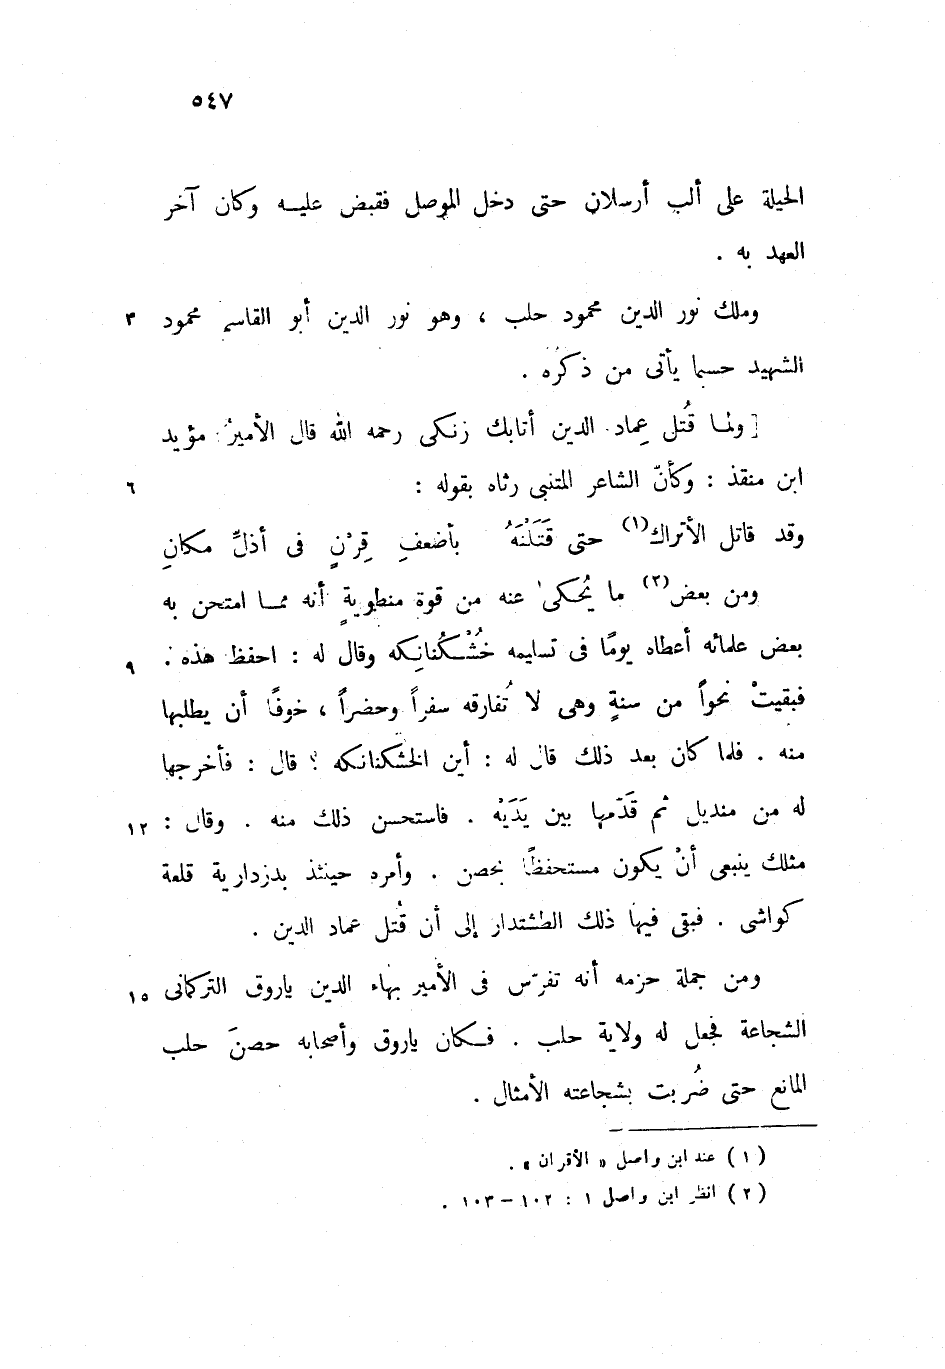 ٥٤٧
الحيلة على ألب أرسلان حتى دخل الموصل فقبض عليـه وكان آخر
العهد به .
وملك نور الدين محمود حلب ، وهو نور الدين أبو القاسم محمود ٣
الشهيد حسبما يأتى من ذكره .
[ ولمـا قُتل عِماد الدين أتابك زنكى رحمه الله قال الأميرُ مؤيد
ابن منقذ : وكأنّ الشاعر المتنبى رثاه بقوله : ٦
وقد قاتل الأتراك(١) حتى قَتَلْنَهُ بأضعفِ قِرْنٍ فى أذلِّ مكانِ
ومن بعض(٢) ما يُحكى عنه من قوة منطوية أنه ممـا امتحن به
بعض علمائه أعطاه يومًا فى تسليمه خُشْـكُنانِكه وقال له : احفظ هذه . ٩
فبقيتْ نحواً من سنةٍ وهى لا تُفارقه سفراً وحضراً ، خوفًا أن يطلبها
منه . فلما كان بعد ذلك قال له : أين الخشكنانكه ؟ قال : فأخرجها
له من منديل ثم قَدّمها بين يَدَيْه . فاستحسن ذلك منه . وقال : ١٢
مثلك ينبغى أنْ يكون مستحفظًا بحصن . وأمره حينئذ بدزدارية قلعة
كواشى . فبقى فيها ذلك الطشتدار إلى أن قُتل عماد الدين .
ومن جملة حزمه أنه تفرّس فى الأمير بهاء الدين ياروق التركمانى ١٥
الشجاعة فجعل له ولاية حلب . فـكان ياروق وأصحابه حصنَ حلب
المانع حتى ضُربت بشجاعته الأمثال .
(١) عند ابن واصل « الأقران » .
(٢) انظر ابن واصل ١ : ١٠٢ – ١٠٣ .